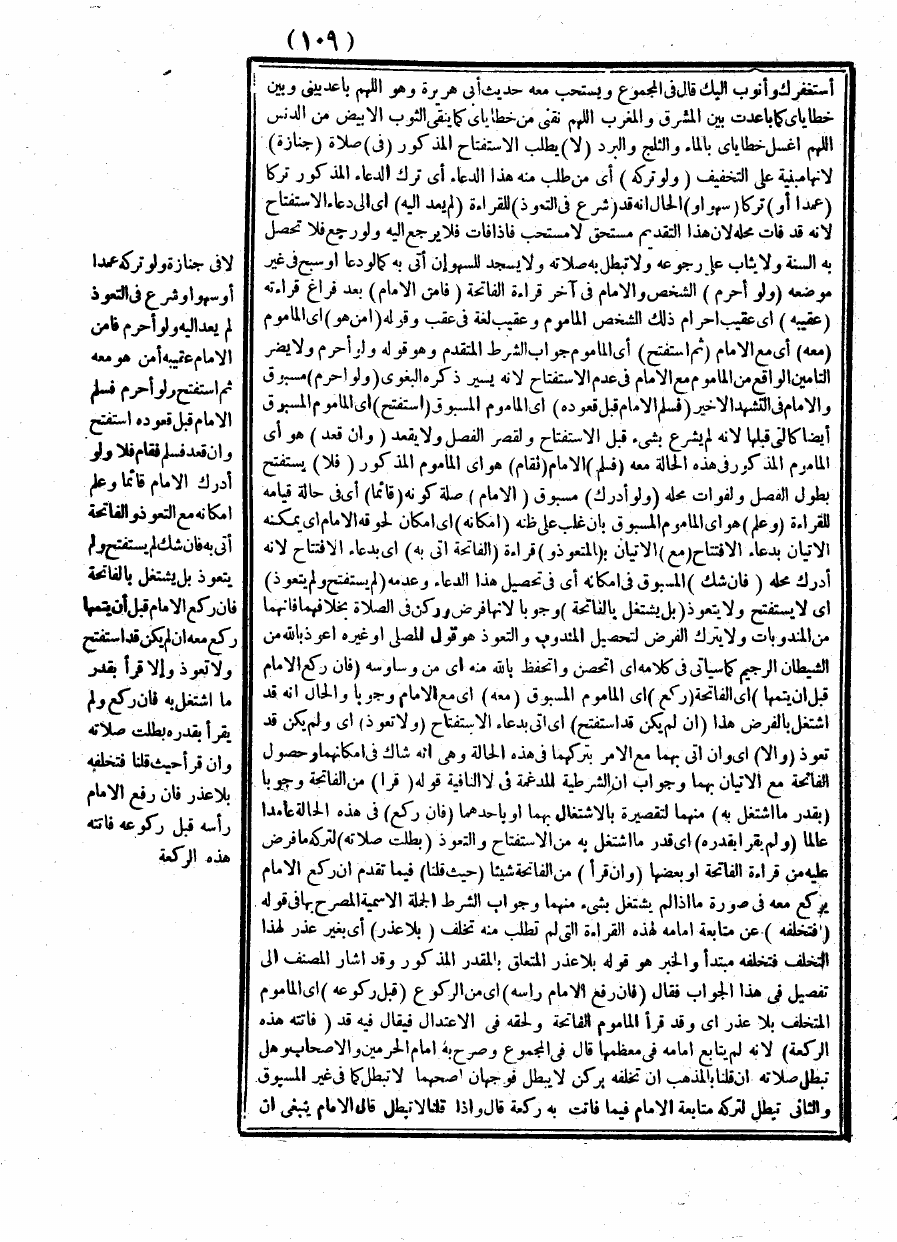 (١٠٩)
أستغفرك وأتوب اليك قال فى المجموع ويستحب معه حديث أبى هريرة وهو اللهم باعد بينى وبين
خطاياى كما باعدت بين المشرق والمغرب اللهم نقنى من خطاياى كما ينقى الثوب الابيض من الدنس
اللهم اغسل خطاياى بالماء والثلج والبرد (لا) يطلب الاستفتاح المذكور (فى) صلاة (جنازة)
لانها مبنية على التخفيف (ولو تركه) أى من طلب منه هذا الدعاء أى ترك الدعاء المذكور تركا
(عمدا أو) تركا (سهوا و) الحال انه قد (شرع فى التعوذ) للقراءة (لم يعد اليه) اى الى دعاء الاستفتاح
لانه قد فات محله لان هذا التقديم مستحق لا مستحب فاذا فات فلا يرجع اليه ولو رجع فلا تحصل
به السنة ولا يثاب على رجوعه ولا تبطل به صلاته ولا يسجد للسهو إن أتى به كما لو دعا او سبح فى غير
موضعه (ولو أحرم) الشخص والامام فى آخر قراءة الفاتحة (فامن الامام) بعد فراغ قراءته
(عقيبه) اى عقيب احرام ذلك الشخص الماموم وعقيب لغة فى عقب وقوله (امن هو) اى الماموم
(معه) أى مع الامام (ثم استفتح) أى الماموم جواب الشرط المتقدم وهو قوله ولو أحرم ولا يضر
التامين الواقع من الماموم مع الامام فى عدم الاستفتاح لانه يسير ذكره البغوى (ولو احرم) مسبوق
والامام فى التشهد الاخير (فسلم الامام قبل قعوده) اى الماموم المسبوق (استفتح) اى الماموم المسبوق
أيضا كالتى قبلها لانه لم يشرع بشىء قبل الاستفتاح ولقصر الفصل ولا يقعد (وان قعد) هو أى
الماموم المذكور فى هذه الحالة معه (فسلم) الامام (فقام) هو اى الماموم المذكور (فلا) يستفتح
بطول الفصل ولفوات محله (ولو أدرك) مسبوق (الامام) صلة كونه (قائما) أى فى حالة قيامه
للقراءة (وعلم) هو اى الماموم المسبوق بان غلب على ظنه (امكانه) اى امكان لحوقه الامام اى يمكنه
الاتيان بدعاء الافتتاح (مع) الاتيان ب(التعوذ و) قراءة (الفاتحة اتى به) اى بدعاء الافتتاح لانه
أدرك محله (فان شك) المسبوق فى امكانه أى فى تحصيل هذا الدعاء وعدمه (لم يستفتح ولم يتعوذ)
اى لا يستفتح ولا يتعوذ (بل يشتغل بالفاتحة) وجوبا لانها فرض وركن فى الصلاة بخلافهما فانهما
من المندوبات ولا يترك الفرض لتحصيل المندوب والتعوذ هو قول المصلى او غيره اعوذ بالله من
الشيطان الرجيم كما سياتى فى كلامه اى اتحصن واتحفظ بالله منه اى من وساوسه (فان ركع الامام
قبل ان يتمها) اى الفاتحة (ركع) اى الماموم المسبوق (معه) اى مع الامام وجوبا والحال انه قد
اشتغل بالفرض هذا (ان لم يكن قد استفتح) اى اتى بدعاء الاستفتاح (ولا تعوذ) اى ولم يكن قد
تعوذ (والا) اى وان اتى بهما مع الامر بتركهما فى هذه الحالة وهى انه شاك فى امكانهما وحصول
الفاتحة مع الاتيان بهما وجواب ان الشرطية المدغمة فى لا النافية قوله (قرا) من الفاتحة وجوبا
(بقدر ما اشتغل به) منهما لتقصيرة بالاشتغال بهما او باحدهما (فان ركع) فى هذه الحالة عامدا
عالما (ولم يقرا بقدره) اى قدر ما اشتغل به من الاستفتاح والتعوذ (بطلت صلاته) لتركه ما فرض
عليه من قراءة الفاتحة او بعضها (وان قرأ) من الفاتحة شيئا (حيث قلنا) فيما تقدم ان ركع الامام
يركع معه فى صورة ما اذا لم يشتغل بشىء منهما وجواب الشرط الجملة الاسمية المصرح بها فى قوله
(فتخلفه) عن متابعة امامه لهذه القراءة التى لم تطلب منه تخلف (بلا عذر) أى بغير عذر لهذا
التخلف فتخلفه مبتدأ والخبر هو قوله بلا عذر المتعلق بالمقدر المذكور وقد اشار المصنف الى
تفصيل فى هذا الجواب فقال (فان رفع الامام راسه) اى من الركوع (قبل ركوعه) اى الماموم
المتخلف بلا عذر اى وقد قرأ الماموم الفاتحة ولحقه فى الاعتدال فيقال فيه قد (فاتته هذه
الركعة) لانه لم يتابع امامه فى معظمها قال فى المجموع وصرح به امام الحرمين والاصحاب وهل
تبطل صلاته ان قلنا بالمذهب ان تخلفه بركن لا يبطل فوجهان اصحهما لا تبطل كما فى غير المسبوق
والثانى تبطل لتركه متابعة الامام فيما فاتت به ركعة قال واذا قلنا لا تبطل قال الامام ينبغى ان
لا فى جنازة ولو تركه عمدا
أو سهوا وشرع فى التعوذ
لم يعد اليه ولو أحرم فامن
الامام عقيبه أمن هو معه
ثم استفتح ولو أحرم فسلم
الامام قبل قعوده استفتح
وان قعد فسلم فقام فلا ولو
أدرك الامام قائما وعلم
امكانه مع التعوذ والفاتحة
أتى به فان شك لم يستفتح ولم
يتعوذ بل يشتغل بالفاتحة
فان ركع الامام قبل أن يتمها
ركع معه ان لم يكن قد استفتح
ولا تعوذ وإلا قرأ بقدر
ما اشتغل به فان ركع ولم
يقرأ بقدره بطلت صلاته
وان قرأ حيث قلنا فتخلفه
بلا عذر فان رفع الامام
رأسه قبل ركوعه فاتته
هذه الركعة